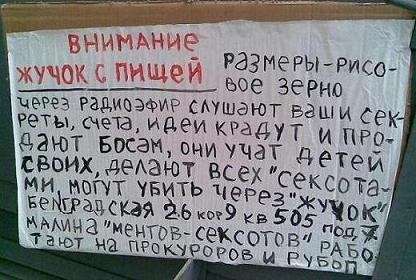 ВНИМАНИЕ
ЖУЧОК С ПИЩЕЙ
РАЗМЕРЫ-РИСО-
ВОЕ ЗЕРНО
ЧЕРЕЗ РАДИОЭФИР СЛУШАЮТ ВАШИ СЕК-
РЕТЫ, СЧЕТА, ИДЕИ КРАДУТ И ПРО-
ДАЮТ БОСАМ, ОНИ УЧАТ ДЕТЕЙ
СВОИХ, ДЕЛАЮТ ВСЕХ "СЕКСОТА-
МИ, МОГУТ УБИТЬ ЧЕРЕЗ "ЖУЧОК"
БЕЛГРАДСКАЯ 26 КОР 9 КВ 505 ПОД. 7
МАЛИНА "МЕНТОВ-СЕКСОТОВ" РАБО-
ТАЮТ НА ПРОКУРОРОВ И РУБОП